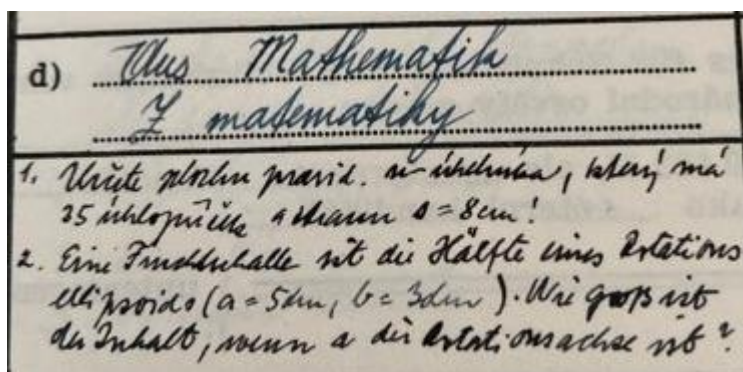 d) Aus Mathematik
Z matematiky
1. Určete plochu pravid. n-úhelníka, který má
35 úhlopříček a stranu s = 8cm!
2. Eine Fruchtschalle ist die Hälfte eines Rotations
ellipsoids (a = 5dm, b = 3dm). Wie groß ist
der Inhalt, wenn a die Rotationsachse ist?